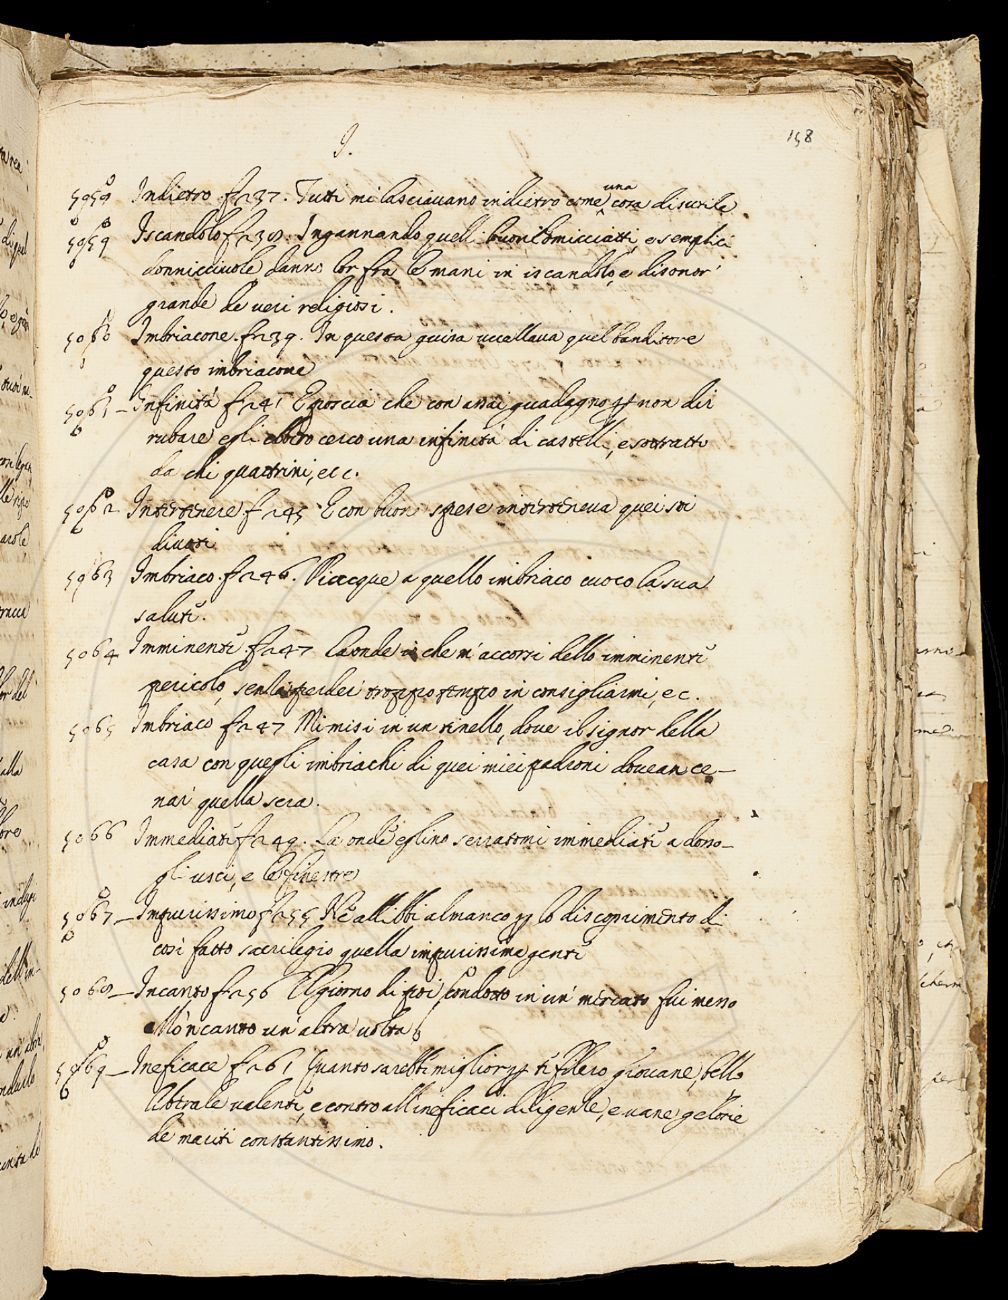 I.
158
5059 Indietro. f 237. Tutti mi lasciavano indietro come una cosa disutile
5059 Iscandolo f 238. Ingannando quelli buoni homicciatti, e semplici
donnicciuole danno lor fra le mani in iscandolo, e disonor
grande de veri religiosi.
5060 Imbriacone. f 239. In questa guisa uccellava quel banditore
questo imbriacone
5061 – Infinità f 241 E poscia che con assai guadagno non di
rubare egli ebbero cerco una infinità di castelli, e sottratti
da chi quattrini, ecc.
5062 Intertenere f 245 E con buon spese intertteneva quei soi
divoti
5063 Imbriaco. f 246. Piacque a quello imbriaco cuoco la sua
salute.
5064 Imminente f 247 Laonde che m'accorsi dello imminente
pericolo, senza perder troppo tempo in consigliarmi, ec.
5065 Imbriaco f 247 Mi misi in un tinello, dove il signor della
casa con quegli imbriachi di quei miei padroni dovean ce-
nar quella sera.
5066 Immediate f 249. La onde eglino serratomi immediate a dosso-
gli usci, e le finestre
5067 – Impurissimo f 255 Ne allibbi almanco lo discoprimento di
così fatto sacrilegio quella impurissime gente
5068 – Incanto f 256 El giorno di poi condotto in un mercato fui messo
allo'ncanto un'altra volta
5069 – Ineficace f 261 Quanto sarebbe miglior Filero giovane, bello
liberale valente, e contro all'ineficaci diligenze, e vane gelosie
de mariti constantissimo.